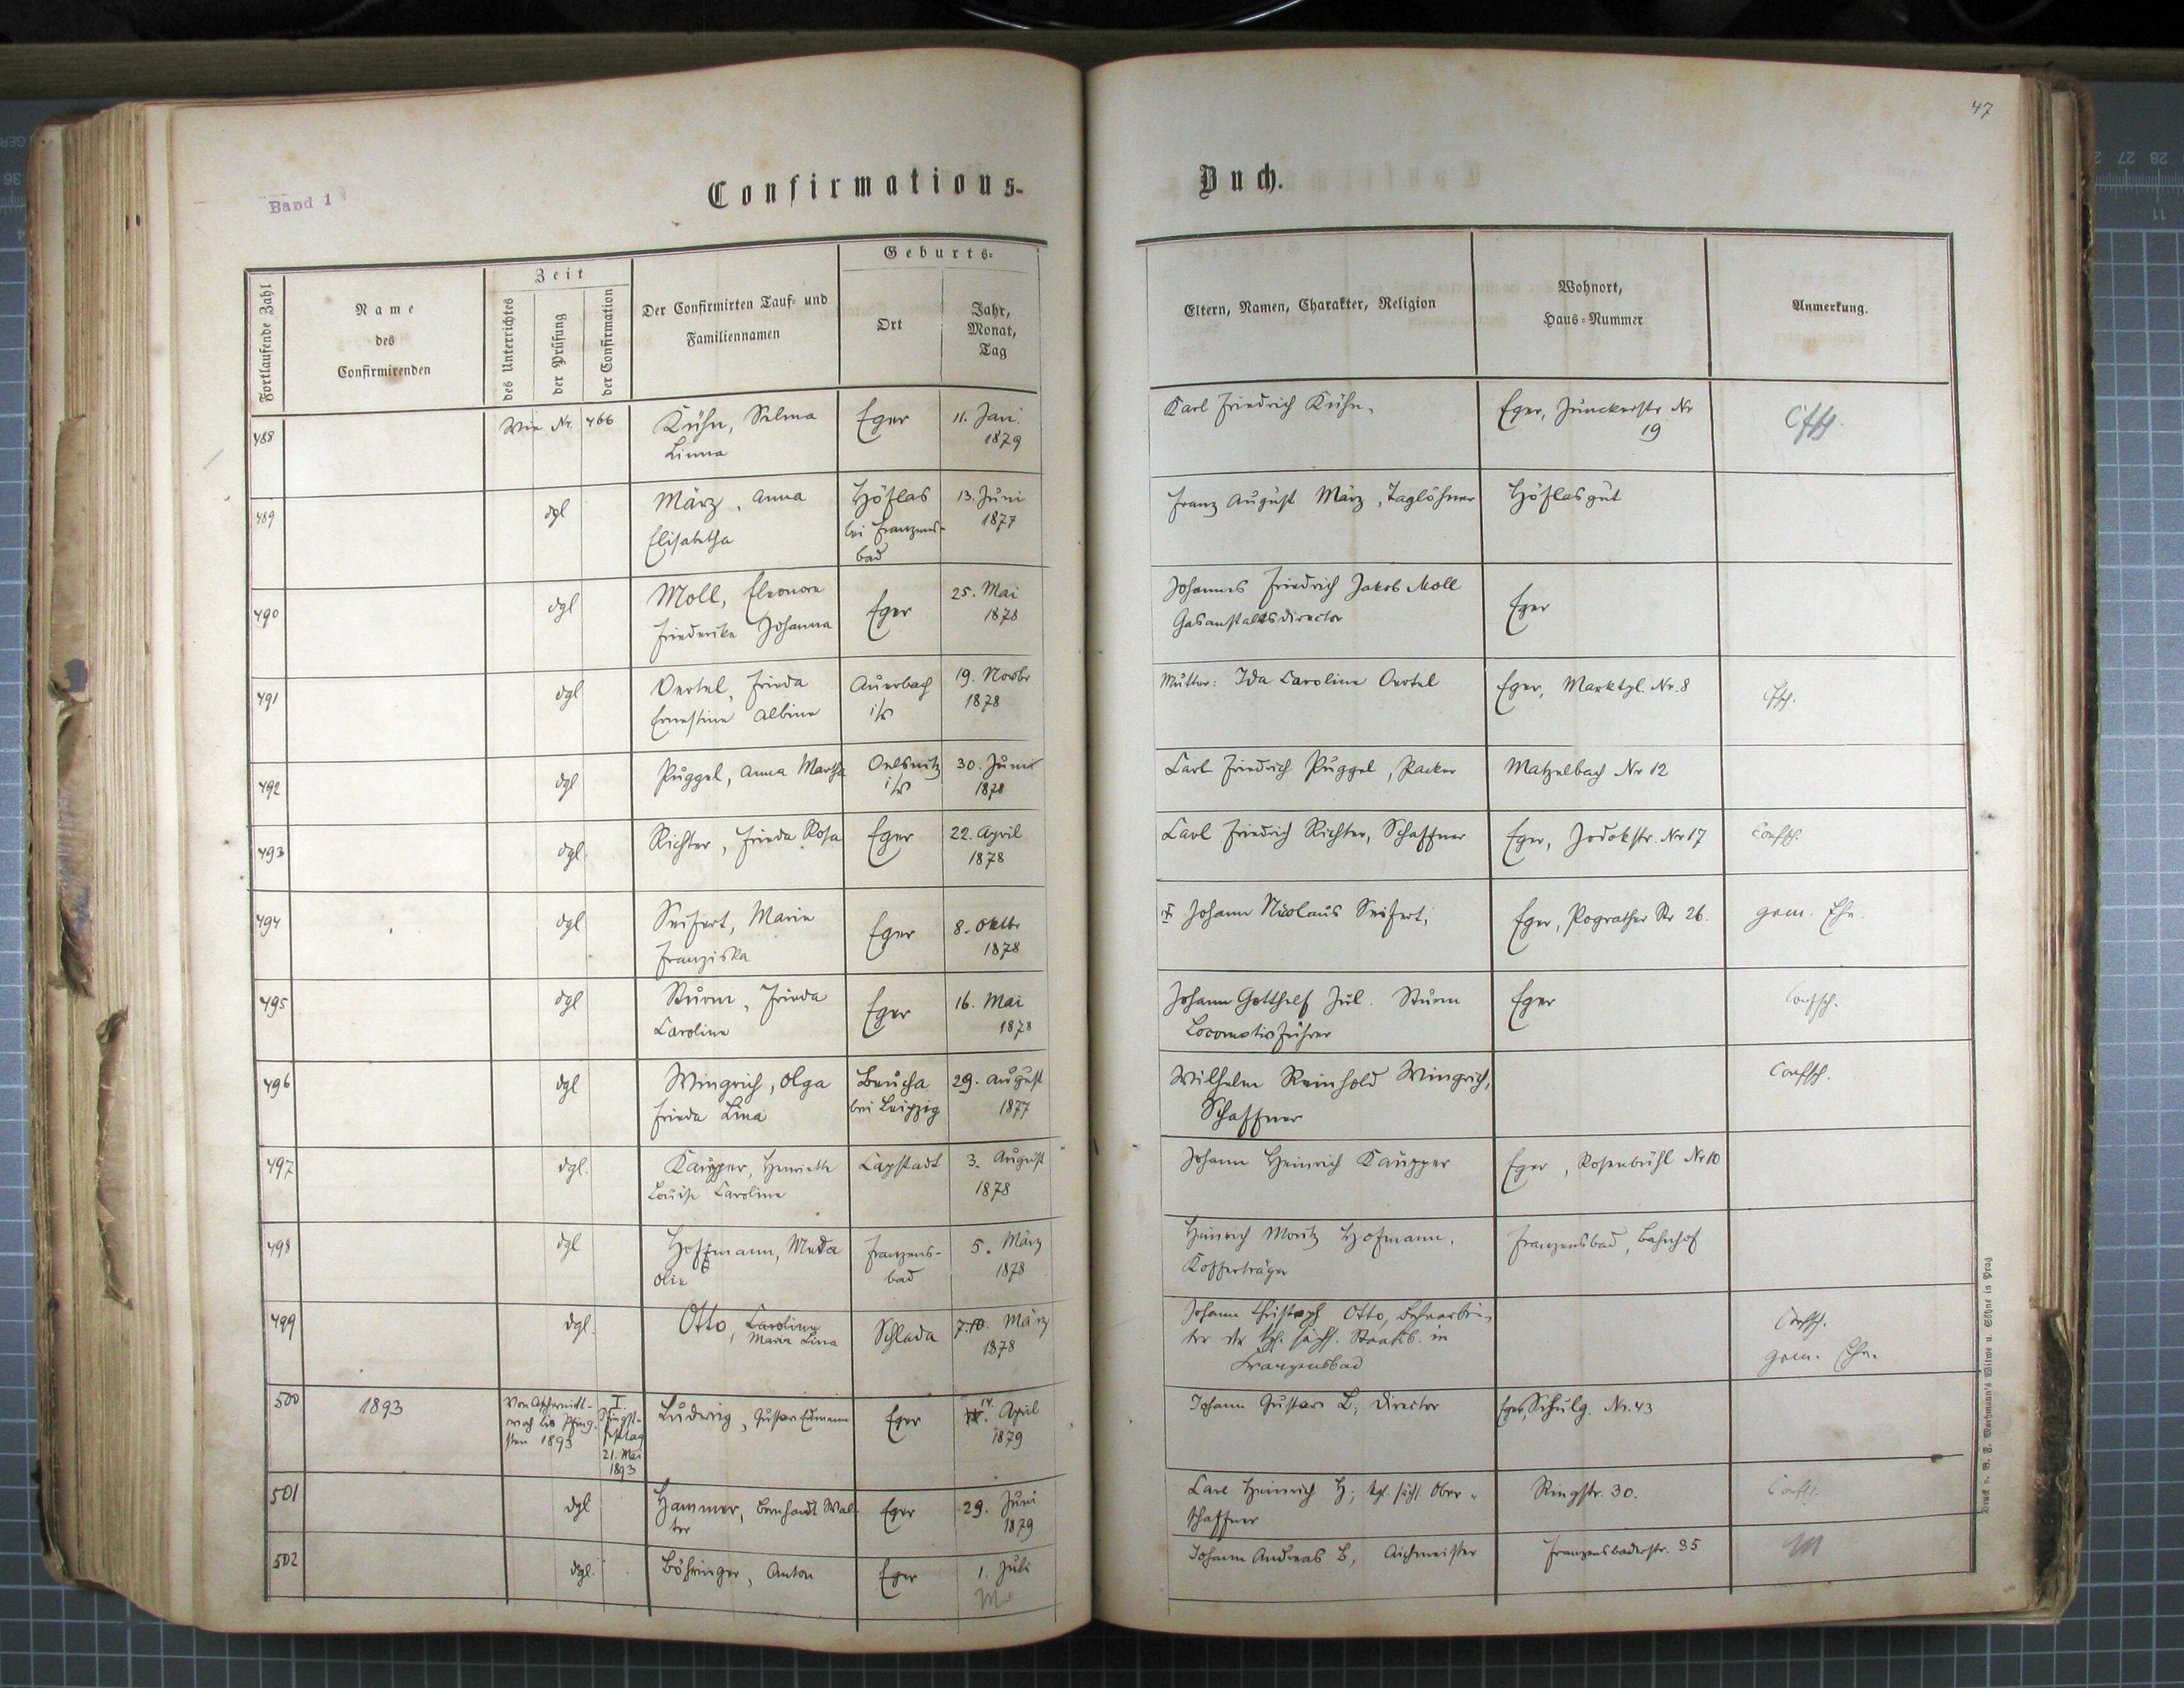 47
Band 1
Confirmations-
Buch.
Fortlaufende Zahl
Name
des
Confirmirenden
Zeit
des Unterrichtes
der Prüfung
der Confirmation
Der Confirmirten Tauf= und
Familiennamen
Geburts=
Ort
Jahr,
Monat,
Tag
Eltern, Namen, Charakter, Religion
Wohnort,
Haus=Nummer
Anmerkung.
488 Wie Nr. 466 Kühn, Selma Eger 11. Jan. Karl Friedrich Kühn. Eger, Junckerstr. Nr
Linna 1879 19
489 dgl März, Anna Höflas 13. Juni Franz August März, Taglöhner Höflasgut
Elisabetha bei Franzens- 1877
bad
490 dgl Moll, Eleonore Eger 25. Mai Johannes Friedrich Jakob Moll Eger
Friederike Johanna 1878 Gasanstaltsdirector
491 dgl Oertel, Frieda Auerbach 19. Novbr Mutter: Ida Caroline Oertel Eger, Marktpl. Nr. 8
Ernestine Albine i/V 1878
492 dgl Püggel, Anna Martha Oelsnitz 30. Juni Carl Friedrich Püggel, Packer Matzelbach Nr 12
i/V 1878
493 dgl. Richter, Frieda Rosa Eger 22. April Carl Friedrich Richter, Schaffner Eger, Jodokstr. Nr 17 Confsch.
1878
494 dgl Seifert, Marie Eger 8. Oktbr Johann Nicolaus Seifert, Eger, Pograther Str 26. gem. Ehe.
Franziska 1878
495 dgl Sturm, Frieda Eger 16. Mai Johann Gotthelf Jul. Sturm Eger Confsch.
Caroline 1878 Locomotivführer
496 dgl Wingrich, Olga Beucha 29. August Wilhelm Reinhold Wingrich, Confsch.
Frieda Lina bei Leipzig 1877 Schaffner
497 dgl. Kaupper, Henriette Capstadt 3. August Johann Heinrich Kaupper Eger, Rosenbühl Nr 10
Louise Caroline 1878
498 dgl Hofmann, Meda Franzens- 5. März Heinrich Moritz Hofmann, Franzensbad, Bahnhof
bad 1878 Kofferträger
499 dgl. Otto, Caroline Schlada 7. 10. März Johann Christoph Otto, Bahnarbei-
Maria Lina 1878 ter der kgl. sächs. Staatsb. in Confsch.
Franzensbad gem. Ehe.
500 1893 Von Aschermitt- I. Ludwig, Gustav Edmann Eger 14. April Johann Gustav L; Director Eger, Schulg. Nr. 43
woch bis Pfing- Pfingst- 1879
sten 1893 festtag
21. Mai
1893
501 dgl Hammer, Bernhardt Wal- Eger 29. Juni Carl Heinrich H; kgl. sächs. Ober- Ringstr. 30. Confsch.
ter 1879 schaffner
502 dgl. Böhringer, Anton Eger 1. Juli Johann Andreas B, Aichmeister Franzensbaderstr. 35
Druck v. B. F. Merkmann's Witwe u. Söhne in Prag